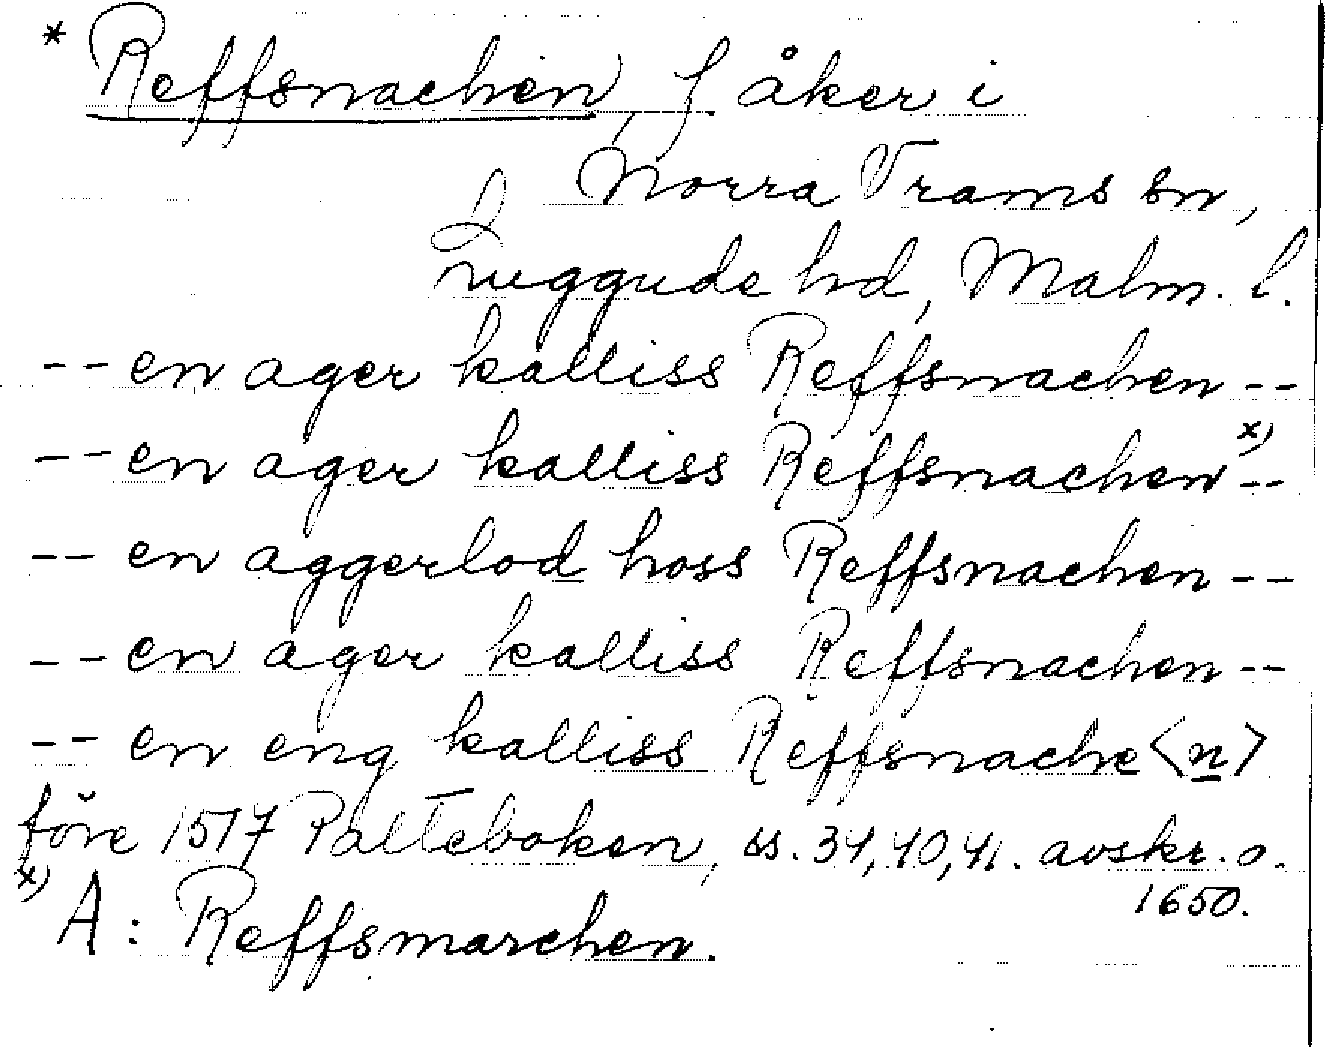 * Reffsnachen, f åker i
Norra Vrams sn,
Luggude hd, Malm. l.
-- en ager kalliss Reffsnachen --
-- en ager kalliss Reffsnachen x) --
-- en aggerlod hoss Reffsnachen --
-- en ager kalliss Reffsnachen --
-- en eng kalliss Reffsnache<n>
före 1517 Palteboken, ss. 34, 40, 41. avskr. o.
1650.
x) A: Reffsmarchen.